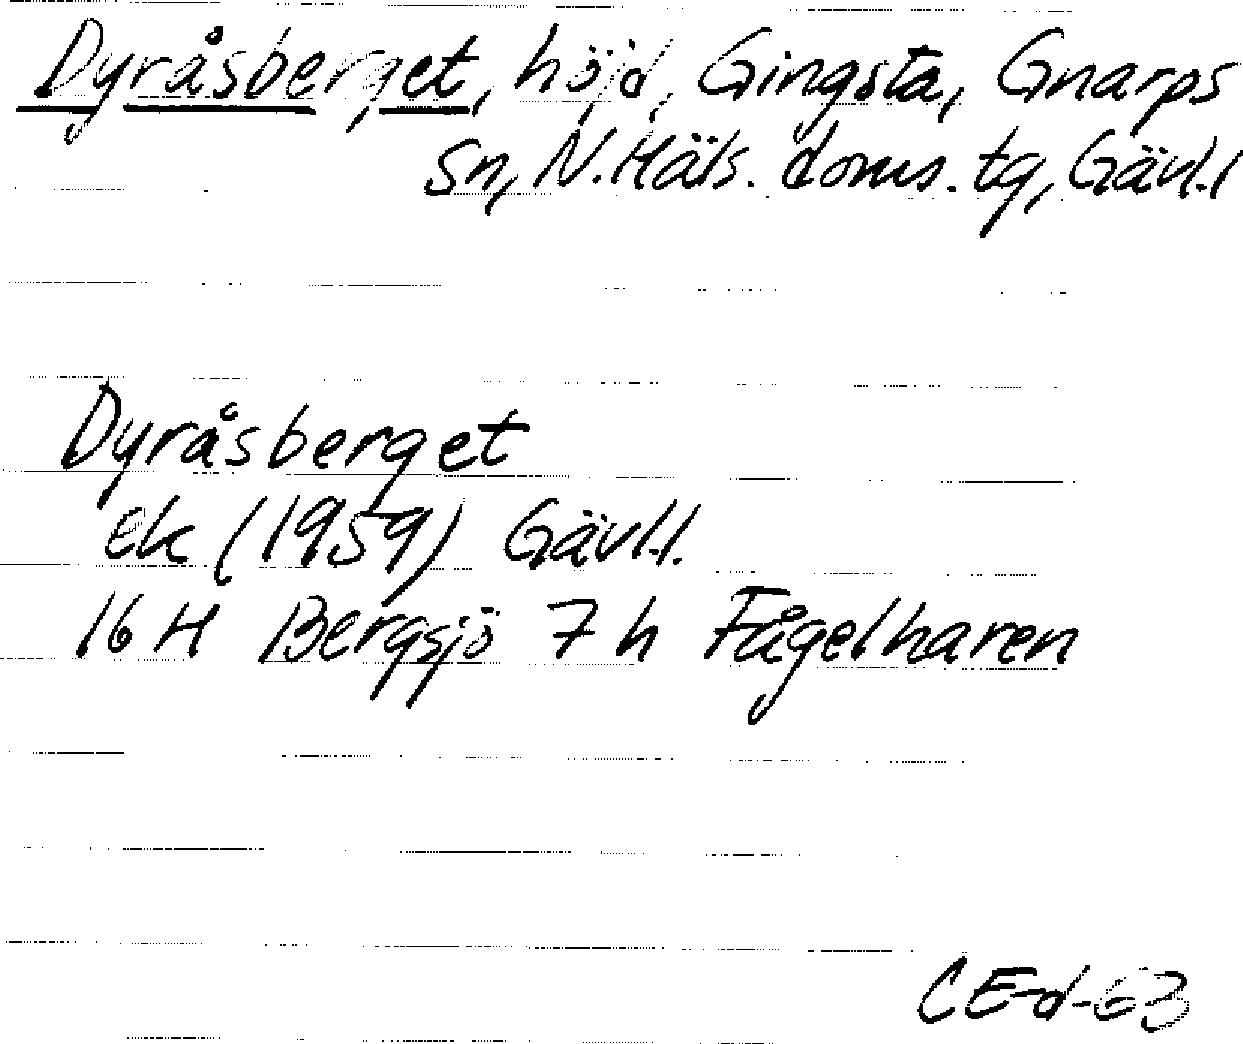 Dyråsberget, höjd, Gingsta, Gnarps
sn, N. Häls. doms. tg, Gävl.l
Dyråsberget
Ek (1959) Gävl.l.
16 H Bergsjö 7 h Fågelharen
CE-d-63